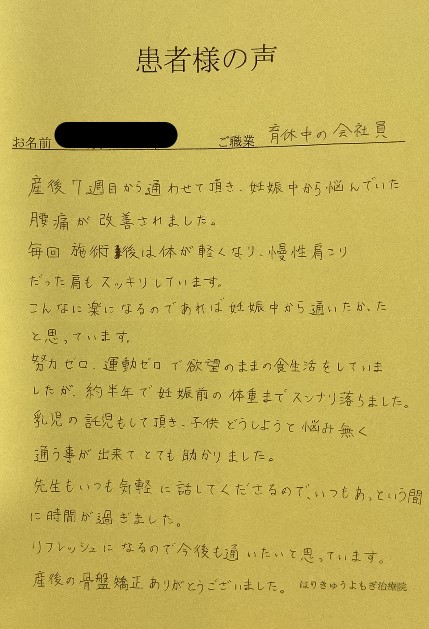 患者様の声
お名前 ご職業 育休中の会社員
産後7週目から通わせて頂き、妊娠中から悩んでいた
腰痛が改善されました。
毎回施術後は体が軽くなり、慢性肩こり
だった肩もスッキリしています。
こんなに楽になるのであれば妊娠中から通いたかった
と思っています。
努力ゼロ、運動ゼロで欲望のままの食生活をしていま
したが、約半年で妊娠前の体重までスンナリ落ちました。
乳児の託児もして頂き、子供どうしようと悩み無く
通う事が出来てとても助かりました。
先生もいつも気軽に話してくださるので、いつもあっという間
に時間が過ぎました。
リフレッシュになるので今後も通いたいと思っています。
産後の骨盤矯正ありがとうございました。 はりきゅうよもぎ治療院